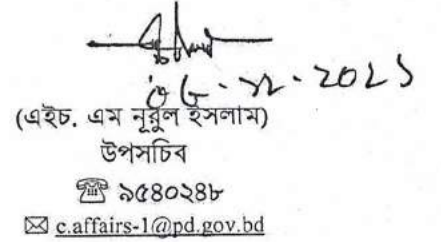 (এইচ. এম নূরুল ইসলাম)
উপসচিব
☎ ৯৫৪০২৪৮
✉ c.affairs-1@pd.gov.bd